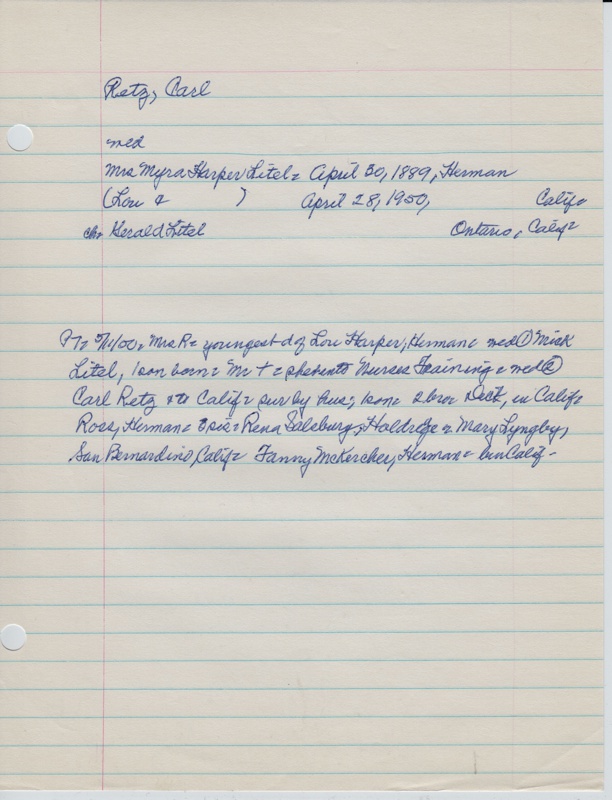 Retz, Carl
med
Mrs Myra Harper Litel = April 30, 1889, Herman
(Lou & ) April 28, 1950, Calif =
ch = Gerald Litel Ontario, Calif =
Mrs R = youngest d of Lou Harper, Herman = med ① Mick
Litel, 1 son born = Mr + = she into Nurses Training = med ②
Carl Retz & to Calif = sur by hus, 1 son = 2 bro = Dick, in Calif =
Ross, Herman = sis = Rena Salsburg, Holdrege = Mary Lyngby,
San Bernardino, Calif = Fanny McKercher, Herman = bur Calif -